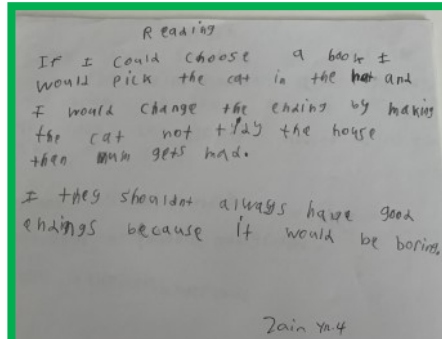 Reading
If I could choose a book I
would pick the cat in the hat and
I would change the ending by making
the cat not tydy the house
then mum gets mad.
I they shouldnt always have good
endings because it would be boring.
Zain yr.4